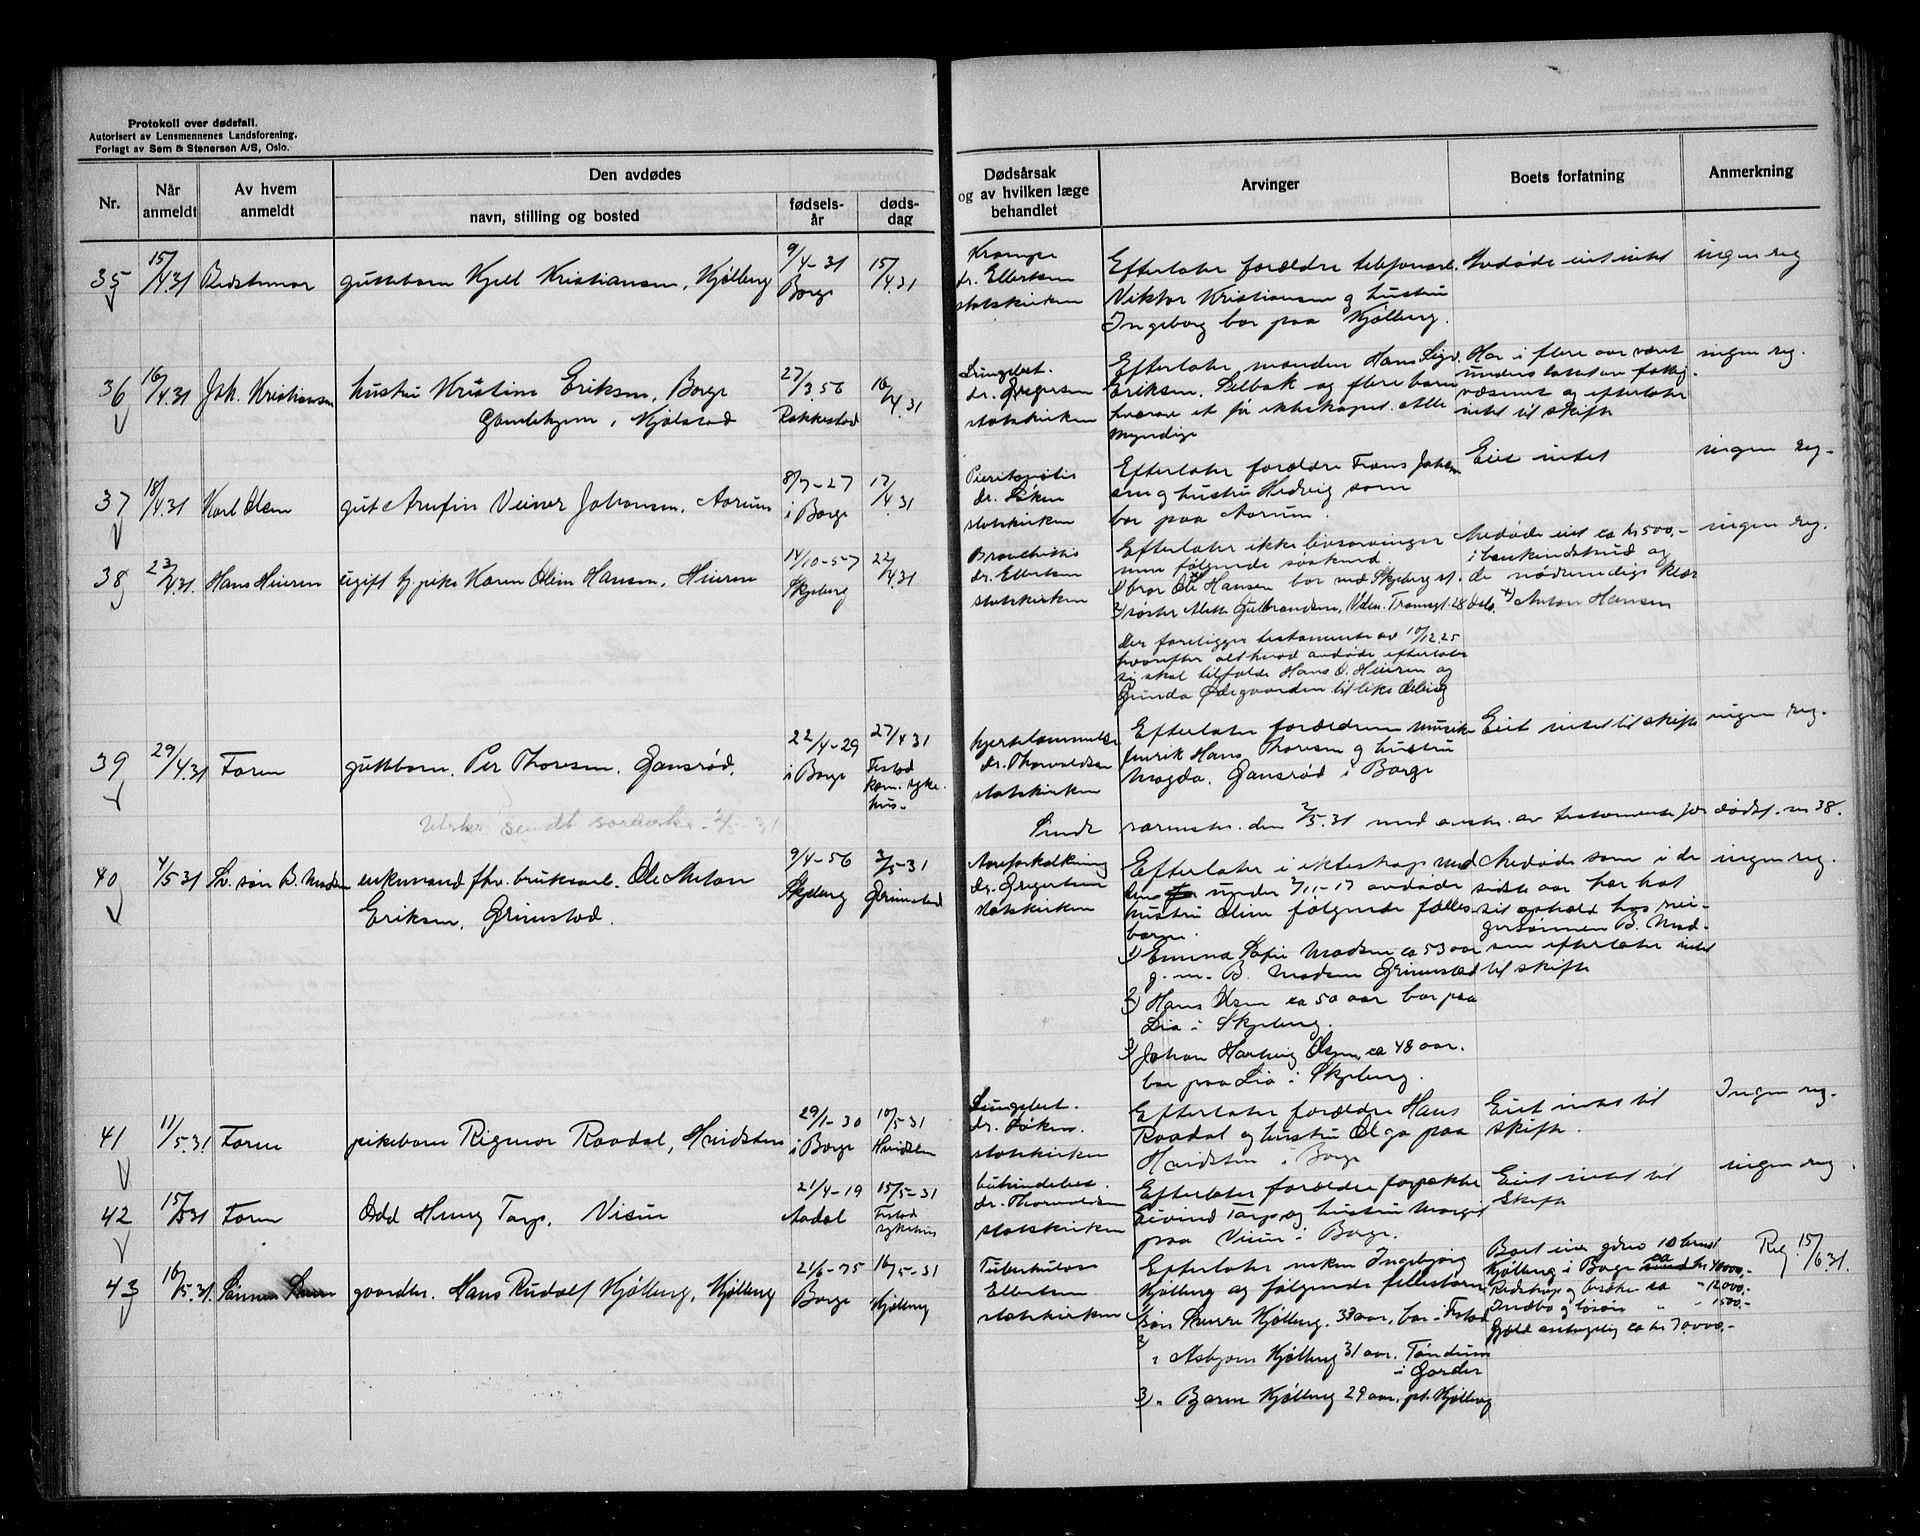 Protokoll over dødsfall.
Autorisert av Lensmennenes Landsforening.
Forlagt av Sem & Stenersen A/S, Oslo.
Nr.
Når anmeldt
Av hvem anmeldt
Den avdødes
navn, stilling og bosted
fødselsår
dødsdag
Dødsårsak og av hvilken læge behandlet
Arvinger
Boets forfatning
Anmerkning
35
15/4.31
guttebarn Kjell Kristiansen, Kjølberg
9/4-31
Borge
15/4.31
Krampe
dr. Ellertsen
statskirken
Efterlater forældre
Viktor Kristiansen og hustru
Ingeborg bor paa Kjølberg.
Avdøde eiet intet
ingen reg
36
16/4.31
Joh. Kristiansen
hustru Kristine Eriksen, Borge
Gamlehjem, Hjølstad
27/3.56
Rakkestad
16/4.31
Lungebet.
dr. Gregersen
statskirken
Efterlater manden Hans Sigv.
Eriksen. Selbak og flere barn
hvorav et før ekteskapet. Alle
myndige
Har i flere aar været
understøttet av fattig-
væsenet og efterlater
intet til skifte
ingen reg.
37
18/4.31
Karl Olsen
gut Arnfin Veiner Johansen, Aarum
8/7-27
i Borge
17/4.31
dr. Løken
statskirken
Efterlater forældre Frans Johan
sen og hustru Hedvig som
bor paa Aarum.
Eiet intet
ingen reg.
38
23/4.31.
Hans Heieren
ugift fh. pike Karen Oline Hansen, Heieren
14/10-57
Skjeberg
22/4.31
Bronchitis
dr. Ellertsen
statskirken
Efterlater ikke livsarvinger
men følgende søskend.
1) bror Ole x Hansen bor ved Skjeberg st.
2) søster Alette Gulbrandsen, Vden. Tromsgt. 28 Oslo.
Der foreligger testamente av 10/12.25
hvorefter alt hvad avdøde efterlater
sig skal tilfalde Hans O. Heieren og
Gunda Ødegaarden til like deling
Avdøde eiet ca kr 500,-
i bankindskud og
de nødvendige klær
x) Anton Hansen
ingen reg.
39
29/4.31
Faren
guttebarn. Per Thoresen. Gansrød.
22/4-29
i Borge
27/4 31
Fr.stad
kom. syke-
hus-
Hjertelammelse
dr. Thorvaldsen
statskirken
Efterlater forældrene musike
Henrik Hans Thoresen og hustru
Magda. Gansrød i Borge
Eiet intet til skifte
ingen reg.
Sendt
sorenskr. den 2/5.31 med avskr. av testamente for dødsf. nr 38.
40
4/5 31
Sv. søn B. Madsen
enkemand fhv. bruksarb. Ole Anton
Eriksen, Grimstad.
9/4-56
Skjeberg
3/5-31
Grimstad
Aareforkalkning
dr. Gregertsen
statskirken
Efterlater i ekteskap med
den under 2/11-17 avdøde
hustru Oline følgende fælles
barn.
1) Emma Sofie Madsen ca 53 aar
g. m. B. Madsen Grimstad
2) Hans Olsen ca 50 aar bor paa
Lia i Skjeberg.
3) Johan Hartvig Olsen, ca 48 aar.
bor paa Lia i Skjeberg.
Avdøde som i de
siste aar har hat
sit ophold hos svi-
gersønnen B. Mad-
sen efterlater intet
til skifte
ingen reg.
41
11/5.31
Faren
pikebarn Rigmor Raadal, Hvidsten
29/1-30
i Borge
10/5-31
Hvidsten
Lungebet.
dr. Løken.
statskirken
Efterlater forældre Hans
Raadal og hustru Olga paa
Hvidsten i Borge
Eiet intet til
skifte.
Ingen reg.
42
15/5 31
Faren
Odd Henry Tarp. Visur
21/4-19
Aadal
15/5-31
Fr.stad
sykehus
dr. Thorvaldsen
statskirken
Efterlater forældre
Eivind Tarp og hustru Margit
paa Visur i Borge.
Eiet intet til
skifte
ingen reg.
43
16/5.31
gaardbr. Hans Rudolf Kjølberg, Kjølberg
21/6-75
Borge
16/5-31
Kjølberg
Tuberkulose
Ellertsen
statskirken
Efterlater enken Ingebjørg
Kjølberg og følgende fellesbarn
1) Søn Sverre Kjølberg. 33 aar, bor i Fr.stad
2) " Asbjørn Kjølberg 31 aar.
3) " Bjarne Kjølberg 29 aar. pt. Kjølberg
Boet eier
Kjølberg i Borge ca kr 40000,-
Redskap og besetn. ca " 12000,-
Indbo og løsøre " " 1500,-
Gjæld antagelig ca kr 70000,-
Reg. 15/6 31.